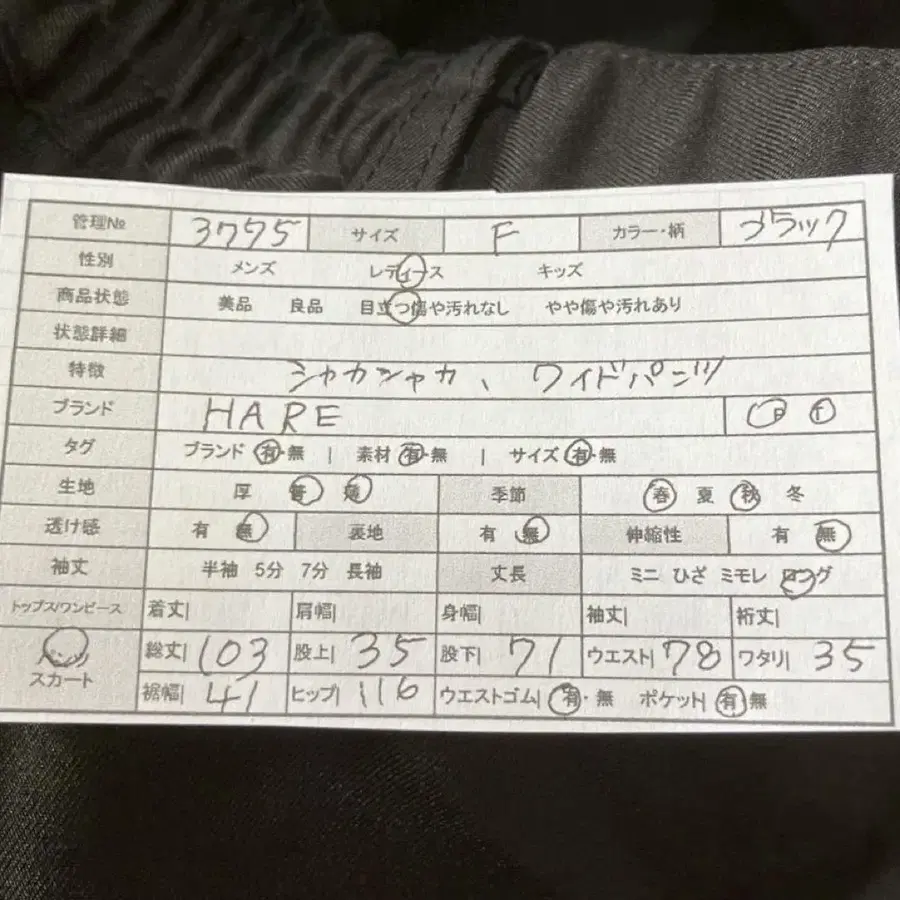 管理№ 3795 サイズ F カラー・柄 ブラック
性別 メンズ レディース キッズ
商品状態 美品 良品 目立つ傷や汚れなし やや傷や汚れあり
状態詳細
特徴 シャカシャカ、ワイドパンツ
ブランド HARE
タグ ブランド 有・無 | 素材 有・無 | サイズ 有・無
生地 厚 普 季節 春 夏 秋 冬
透け感 有 無 裏地 有 無 伸縮性 有 無
袖丈 半袖 5分 7分 長袖 丈長 ミニ ひざ ミモレ ロング
トップス/ワンピース 着丈| 肩幅| 身幅| 袖丈| 裄丈|
パンツ 総丈| 103 股上| 35 股下| 71 ウエスト| 78 ワタリ| 35
スカート 裾幅| 41 ヒップ| 116 ウエストゴム| 有・無 ポケット| 有・無